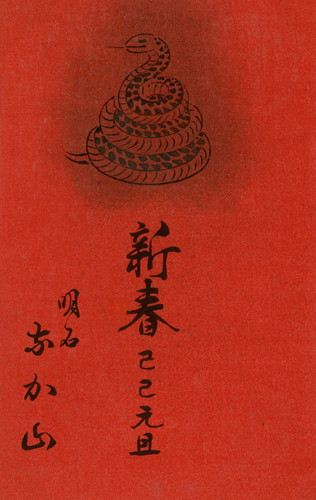 新春
己巳元旦
明石
なか山